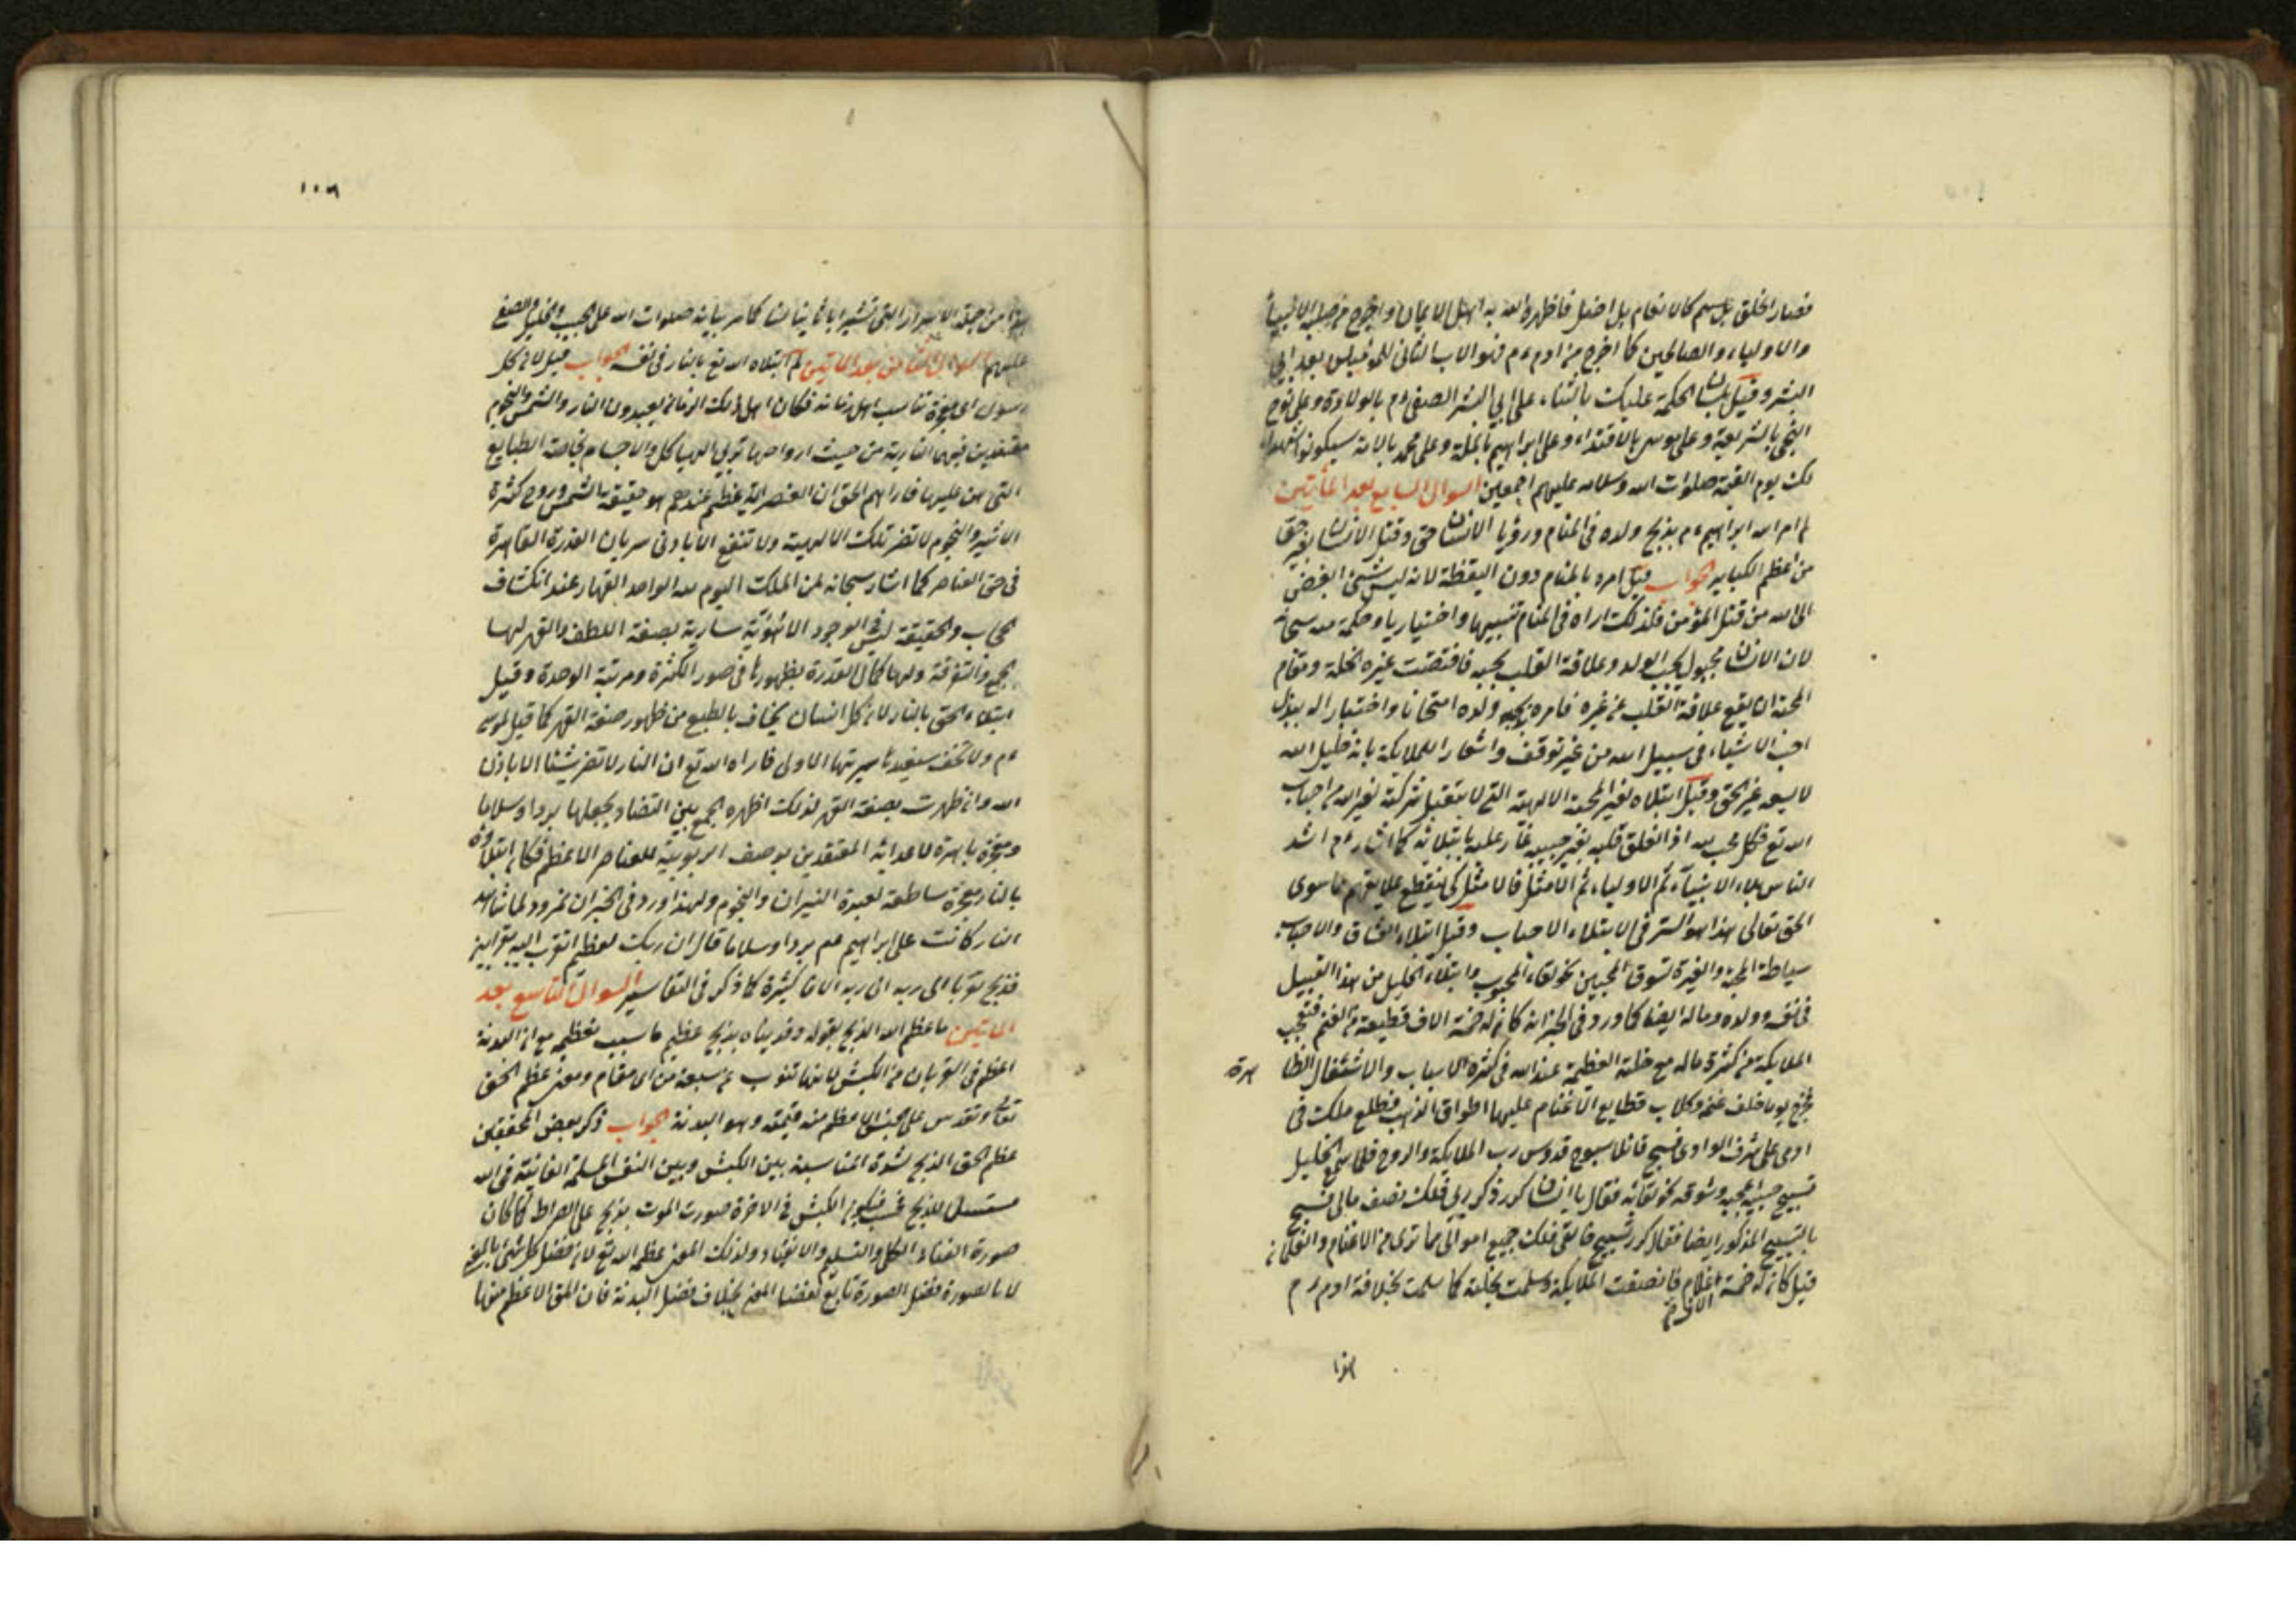 فصار الخلق كلهم كالانعام بل اضل فاظهره الله به اهل الايمان واخرج من صلبه الانبيآء
والاولياء والصالحين كما اخرج من ادم عم فهو الاب الثانى بعد ابى
البشر وقيل بلسان الحكمة عليك بالثناء على ابى البشر الصفى عم بالولادة وعلى نوح
النجى بالشريعة وعلى موسى بالاقتداء وعلى ابراهيم بالملة وعلى محمد بالامة سيكونوا شهداء
لك يوم القيمة صلوات الله وسلامه عليهم اجمعين السوال السابع بعد المأتين
لم امر الله ابراهيم عم بذبح ولده فى المنام ورؤيا الانسان حق وقتل الانسان بغير حق
من اعظم الكباير الجواب قيل امره بالمنام دون اليقظة لانه ليس شئ ابغض
الى الله من قتل المؤمن فلذلك اراه فى المنام تنبيها واختياريا وحكمة منه سبحانه
لان الانسان مجبول بحب الولد وعلاقة القلب بحبه فاقتضت غيرة الخلة ومقام
المحبة ان يقطع علاقة القلب عن غيره فامره بذبح ولده امتحانا واختبارا له ببذل
احب الاشياء فى سبيل الله من غير توقف واشعارا للملايكة بانه خليل الله
لا يسعه غير الحق وقيل ابتلاه لغير المحبة الالهية التى لا تقبل شركة لغير الله من احباب
الله تع فكل محب لله اذا تعلق قلبه بغير حبيبه غار عليه بابتلائه كما اشار عم اشد
الناس بلاء الانبيآء ثم الاولياء ثم الامثل فالامثل كى ينقطع علايقهم ما سوى
الحق تعالى هذا هو السر فى الابتلاء الاحباب وقيل ابتلاء العشاق والاحباب
سياط المحبة والغيرة تسوق المحبين نحو لقاء المحبوب وابتلاء الخليل من هذا القبيل
فى نفسه وولده وماله ايضا كما ورد فى الخبر انه كان له خمسة الاف قطيعة من الغنم فتعجب
الملايكة من كثرة ماله مع خلته العظيمة عند الله فى كثرة الاسباب والاشتغال الظا هرة
فخرج يوما خلف غنمه وكلاب قطايع الاغنام عليها اطواق الذهب فطلع ملك فى
ادمى على شرف الوادى فسبح قائلا سبوح قدوس رب الملايكة والروح فلما سمع الخليل
تسبيح حبيبه اعجبه وشوقه نحو لقائه فقال يا انسان كرر ذكر ربى فلك نصف مالى فسبح
بالتسبيح المذكور ايضا فقال كرر تسبيح خالقى فلك جميع اموالى مما ترى من الاغنام والغلمان
قيل كان له خمسة الاف غلام فانصفت الملايكة وسلمت بخلته كما سلمت بخلافة ادم عم
هذا
١٠٦
هذا من جملة الاسرار التى تشير كما مر بيانه صلوات الله على الحبيب والخليل والصفى
عليهم السوال الثامن بعد المأتين لم ابتلاه الله تع بالنار فى نفسه الجواب قيل لان كل
رسول اتى بمعجزة تناسب اهل زمانه فكان اهل ذلك الزمان يعبدون النار والشمس والنجوم
معتقدين فيها التاثير من حيث ارواحها تربى الهياكل والاجسام بخاصة الطبايع
التى هن عليها فاراهم الحق ان العنصر الذى عظم عندهم هو حقيقة الشمس وروح كثرة
الاثير والنجوم لا تضر تلك الالهية ولا تنفع الا باذنى سريان القدرة القاهرة
فى حق العناصر كما اشار سبحانه لمن الملك اليوم لله الواحد القهار عند انكشاف
الحجاب والحقيقة ليس فى الوجود الا هوية سارية بصفة اللطف والقهر لها
الجمع والتفرقة ولها كمال القدرة بظهورها فى صور الكثرة ومرتبة الوحدة وقيل
ابتلاء الحق بالنار لان كل انسان يخاف بالطبع من ظهور صفة القهر كما قيل لموسى
عم ولا تخف سنعيدها سيرتها الاولى فاراه الله تع ان النار لا تضر شيئا الا باذن
الله وان ظهرت بصفة القهر لذلك اظهره الجمع بين التضاد بجعلها بردا وسلاما
ومعجزة باهرة لاعدائه المعتقدين بوصف الربوبية للعناصر الاعظم فكان ابتلاؤه
بالنار معجزة ساطعة لعبدة النيران والنجوم ولهذا ورد فى الخبر ان نمرود لما شاهد
النار كانت على ابراهيم عم بردا وسلاما قال ان ربك لعظيم اتقرب اليه بقرابين
فذبح تقربا الى ربه الافا كثيرة كما ذكر فى التفاسير السوال التاسع بعد
المأتين ما عظم الله الذبح بقوله وفديناه بذبح عظيم ما سبب تعظيمه مع ان البدنة
اعظم فى القربان من الكبش لانها تنوب عن سبعة من اى مقام ومعنى عظم الحق
تعالى وتقدس على الكبش الاعظم منه قيمته وهو البدنة الجواب ذكر بعض المحققين
عظم الحق الذبح لشدة المناسبة بين الكبش وبين النفس المسلمة الفانية فى الله
مستسلما للذبح فحسب فيكون الكبش فى الاخرة صورت الموت يذبح على الصراط كما كان
صورة الفناء الكلى والتسليم والانقياد ولذلك المعنى عظمه الله تع لان فضل كل شئ بالمعنى
لا بالصورة فضل الصورة تابع لفضل المعنى بخلاف فضل البدنة فان المعنى الاعظم منها